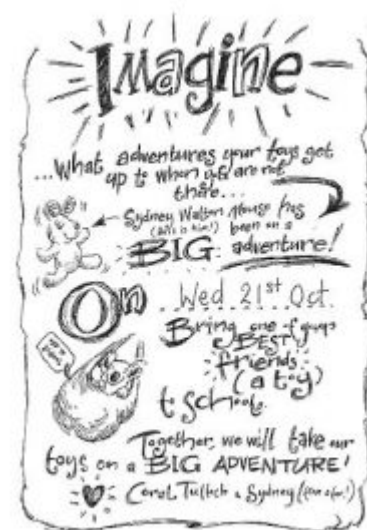 Imagine
...What adventures your toys get
up to when you are not
there...
Sydney Walton Mouse has
(this is him!) been on a
BIG adventure!
On Wed 21st Oct.
Bring one of your
BEST
friends
(a toy)
to school.
Together, we will take our
toys on a BIG ADVENTURE!
Carol Tulloch & Sydney